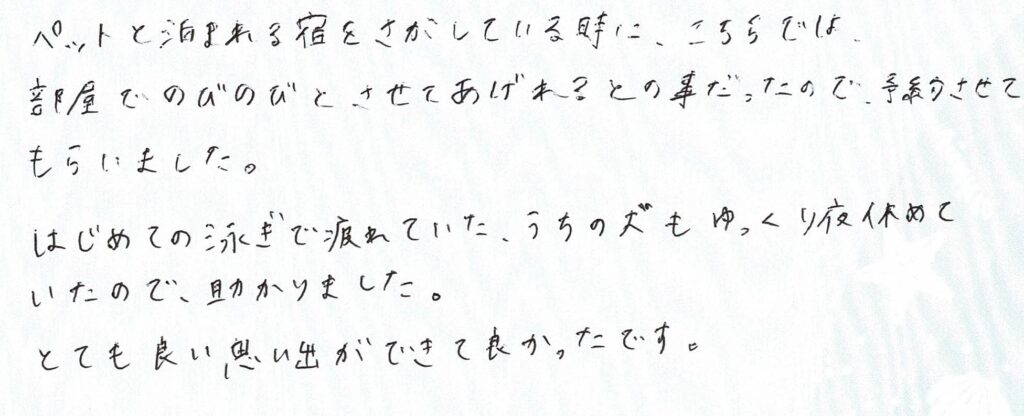 ペットと泊まれる宿をさがしている時に、こちらでは、
部屋でのびのびとさせてあげれるとの事だったので、予約させて
もらいました。
はじめての泳ぎで疲れていた、うちの犬もゆっくり夜休めて
いたので、助かりました。
とても良い思い出ができて良かったです。